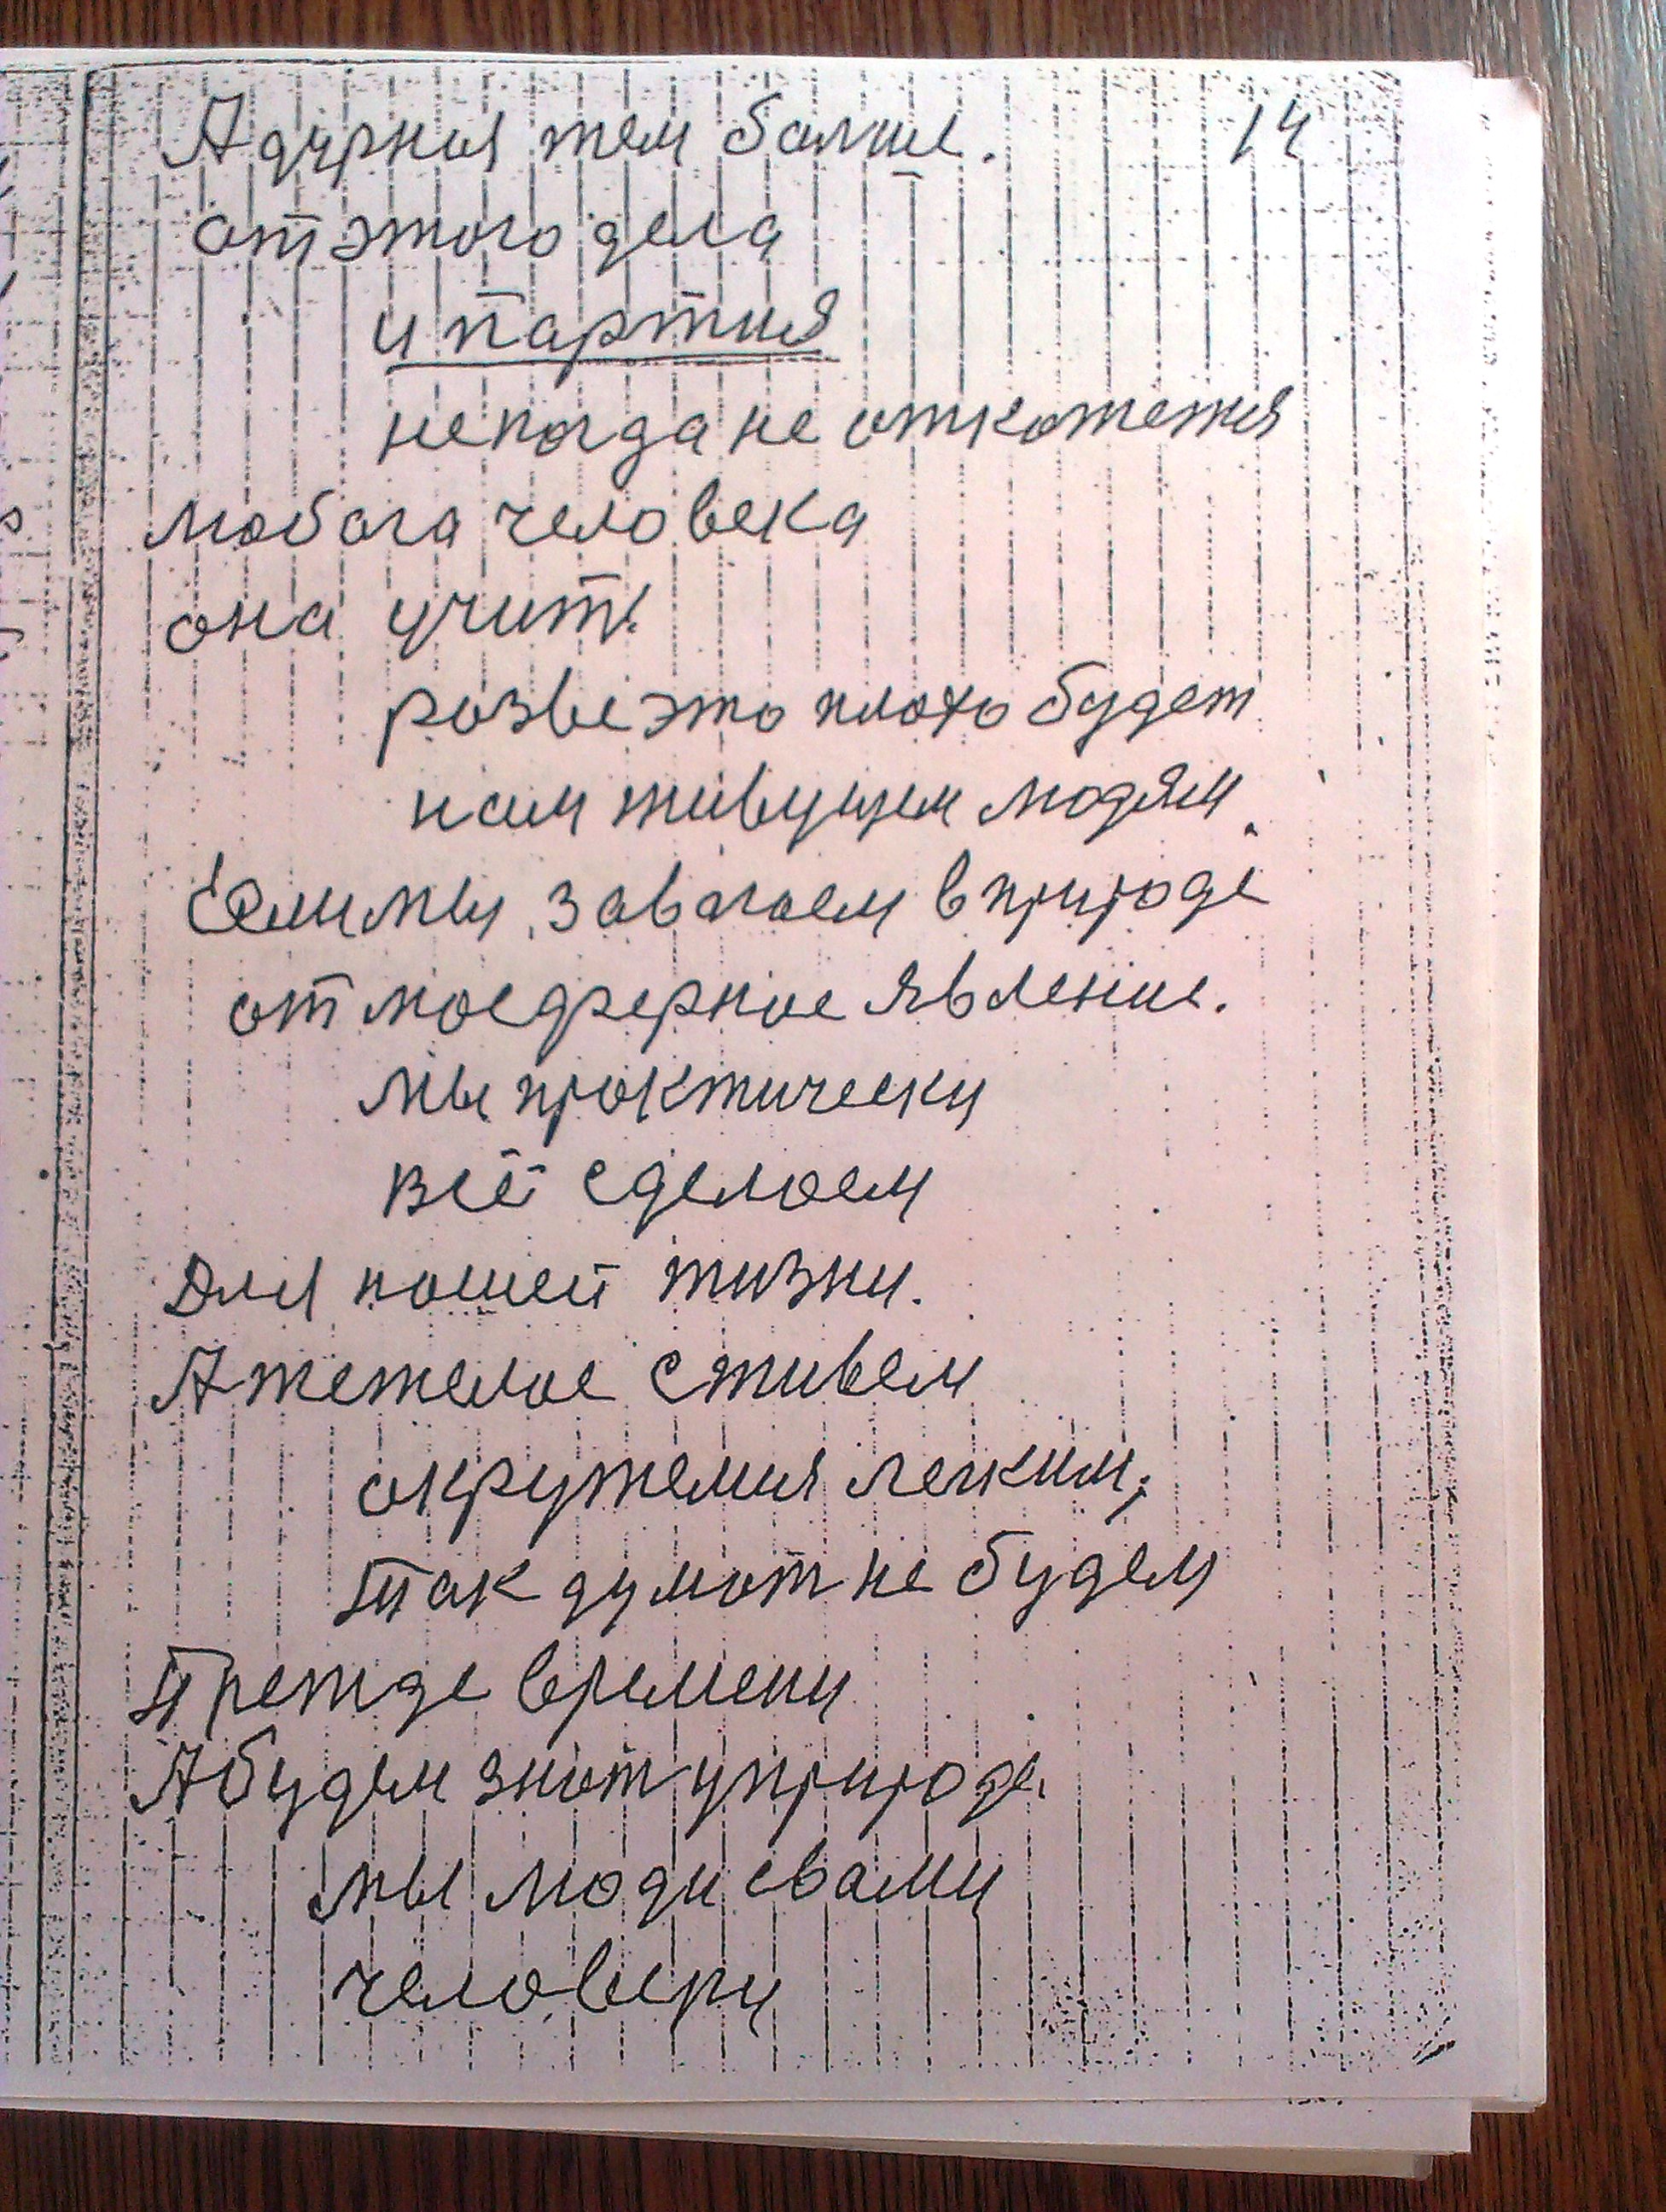 Адярныя тем болше. 14
от этого дела
и партия
некогда не откожетия
любога человека
она учит.
розве это плохо будет
нам живущем людям.
Если мы завлоем в природе
отмоедрерное явление.
мы проктически
всё сделоем
Для ношей жизни.
А тежелое с живем
окружемия легким,
так думот не будем
Прежде времени
А будем знот у природе.
мы люди свами